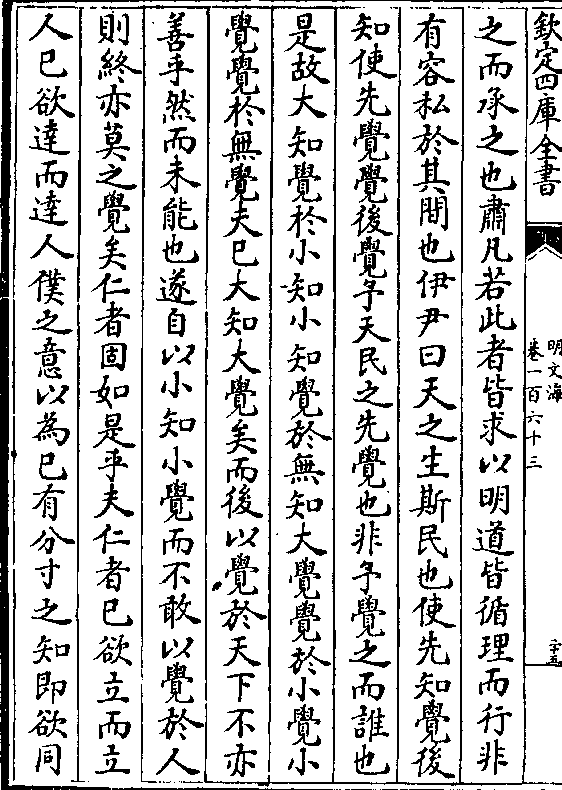 欽定四庫全書
明文海
卷一百六十三
二十五
之而承之也肅凡若此者皆求以明道皆循理而行非
有容私於其間也伊尹曰天之生斯民也使先知覺後
知使先覺覺後覺予天民之先覺也非予覺之而誰也
是故大知覺於小知小知覺於無知大覺覺於小覺小
覺覺於無覺夫已大知大覺矣而後以覺於天下不亦
善乎然而未能也遂自以小知小覺而不敢以覺於人
則終亦莫之覺矣仁者固如是乎夫仁者已欲立而立
人已欲達而達人僕之意以為已有分寸之知即欲同